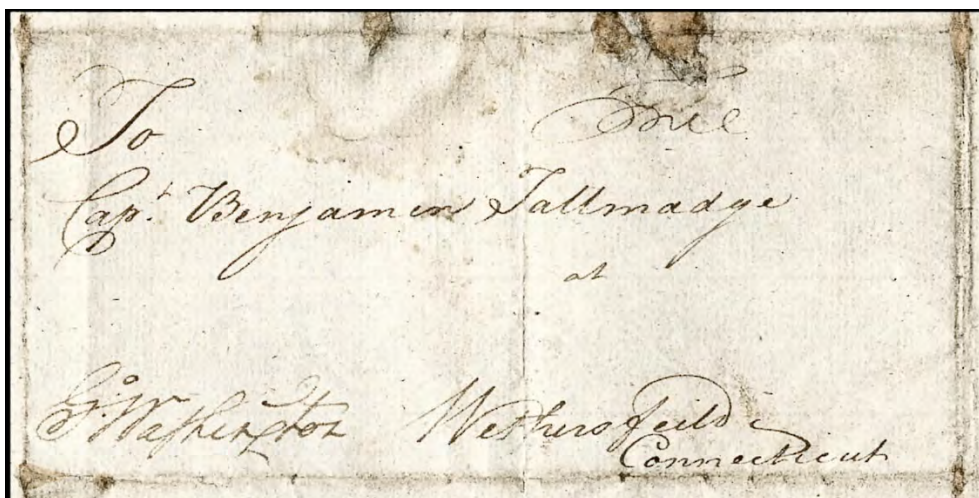 To
Free
Capt. Benjamin Tallmadge
at
Go: Washington
Wethersfeild
Connecticut